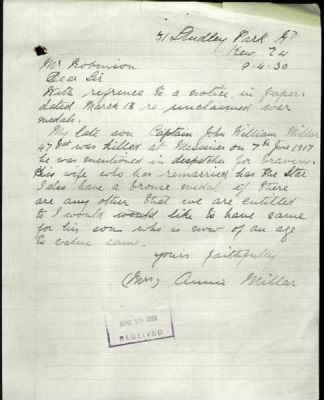 51 Studley Park Rd
Kew E4
9-4-30
Mr Robinson
Dear Sir
With refrence to a notice in paper
dated March 13 re unclaimed war
medals.
My late son Captain John William Millar
47 Batt was killed at Messines on 7th June 1917
he was mentioned in despatches for bravery.
His wife who has remarried has the Star
I also have a bronze medal if there
are any other that we are entitled
to I would like to have same
for his son who is now of an age
to value same.
yours faithfully
(Mrs) Annie Millar
APR 10 1930
RECEIVED